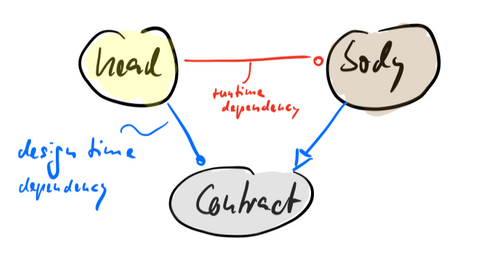 head
body
runtime
dependency
design time
dependency
Contract